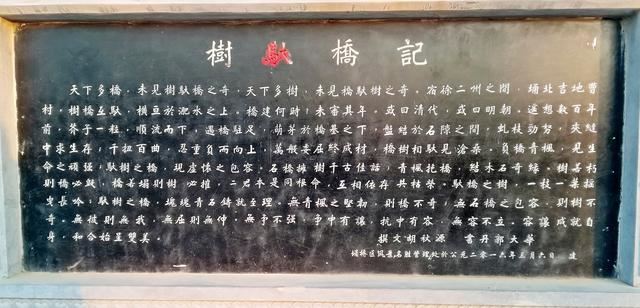 樹馱橋記
天下多橋，未見樹馱橋之奇，天下多樹，未見橋馱樹之奇。宿徐二州之間，埇北吉地曹
村，樹橋互馱，橫亘於泥水之上。橋建何時，未審其年，或曰清代，或曰明朝。遥想數百年
前，芥子一粒，順流而下，遇橋駐足，萌芽於橋基之下，盤結於石隙之間，虬枝勁努，夾縫
中求生存，千扭百曲，忍重負而向上，萬般委屈終成材，橋樹相馱見滄桑，負橋青楓，見生
命之頑强，馱樹之橋，現虛懷之包容。石橋擁樹千古佳話，青楓托橋，結木石奇緣。樹若朽
則橋必
橋若塌則樹必摧，二者本是同根命，互相依存，共枯榮。馱橋之樹，一枝一葉
長吟，馱樹之橋，塊塊青石鑄就至理。無青楓之堅韌，則橋不奇，無石橋之包容，則樹不
奇。無彼則無我，無屈則無伸，無爭不强，爭中有讓，抗中有容，無容不立，容讓成就自
身，和合始呈雙美。
撰文胡秋源 書丹郭大華
埇橋區風景名勝管理處於公元二零一六年三月六日 建